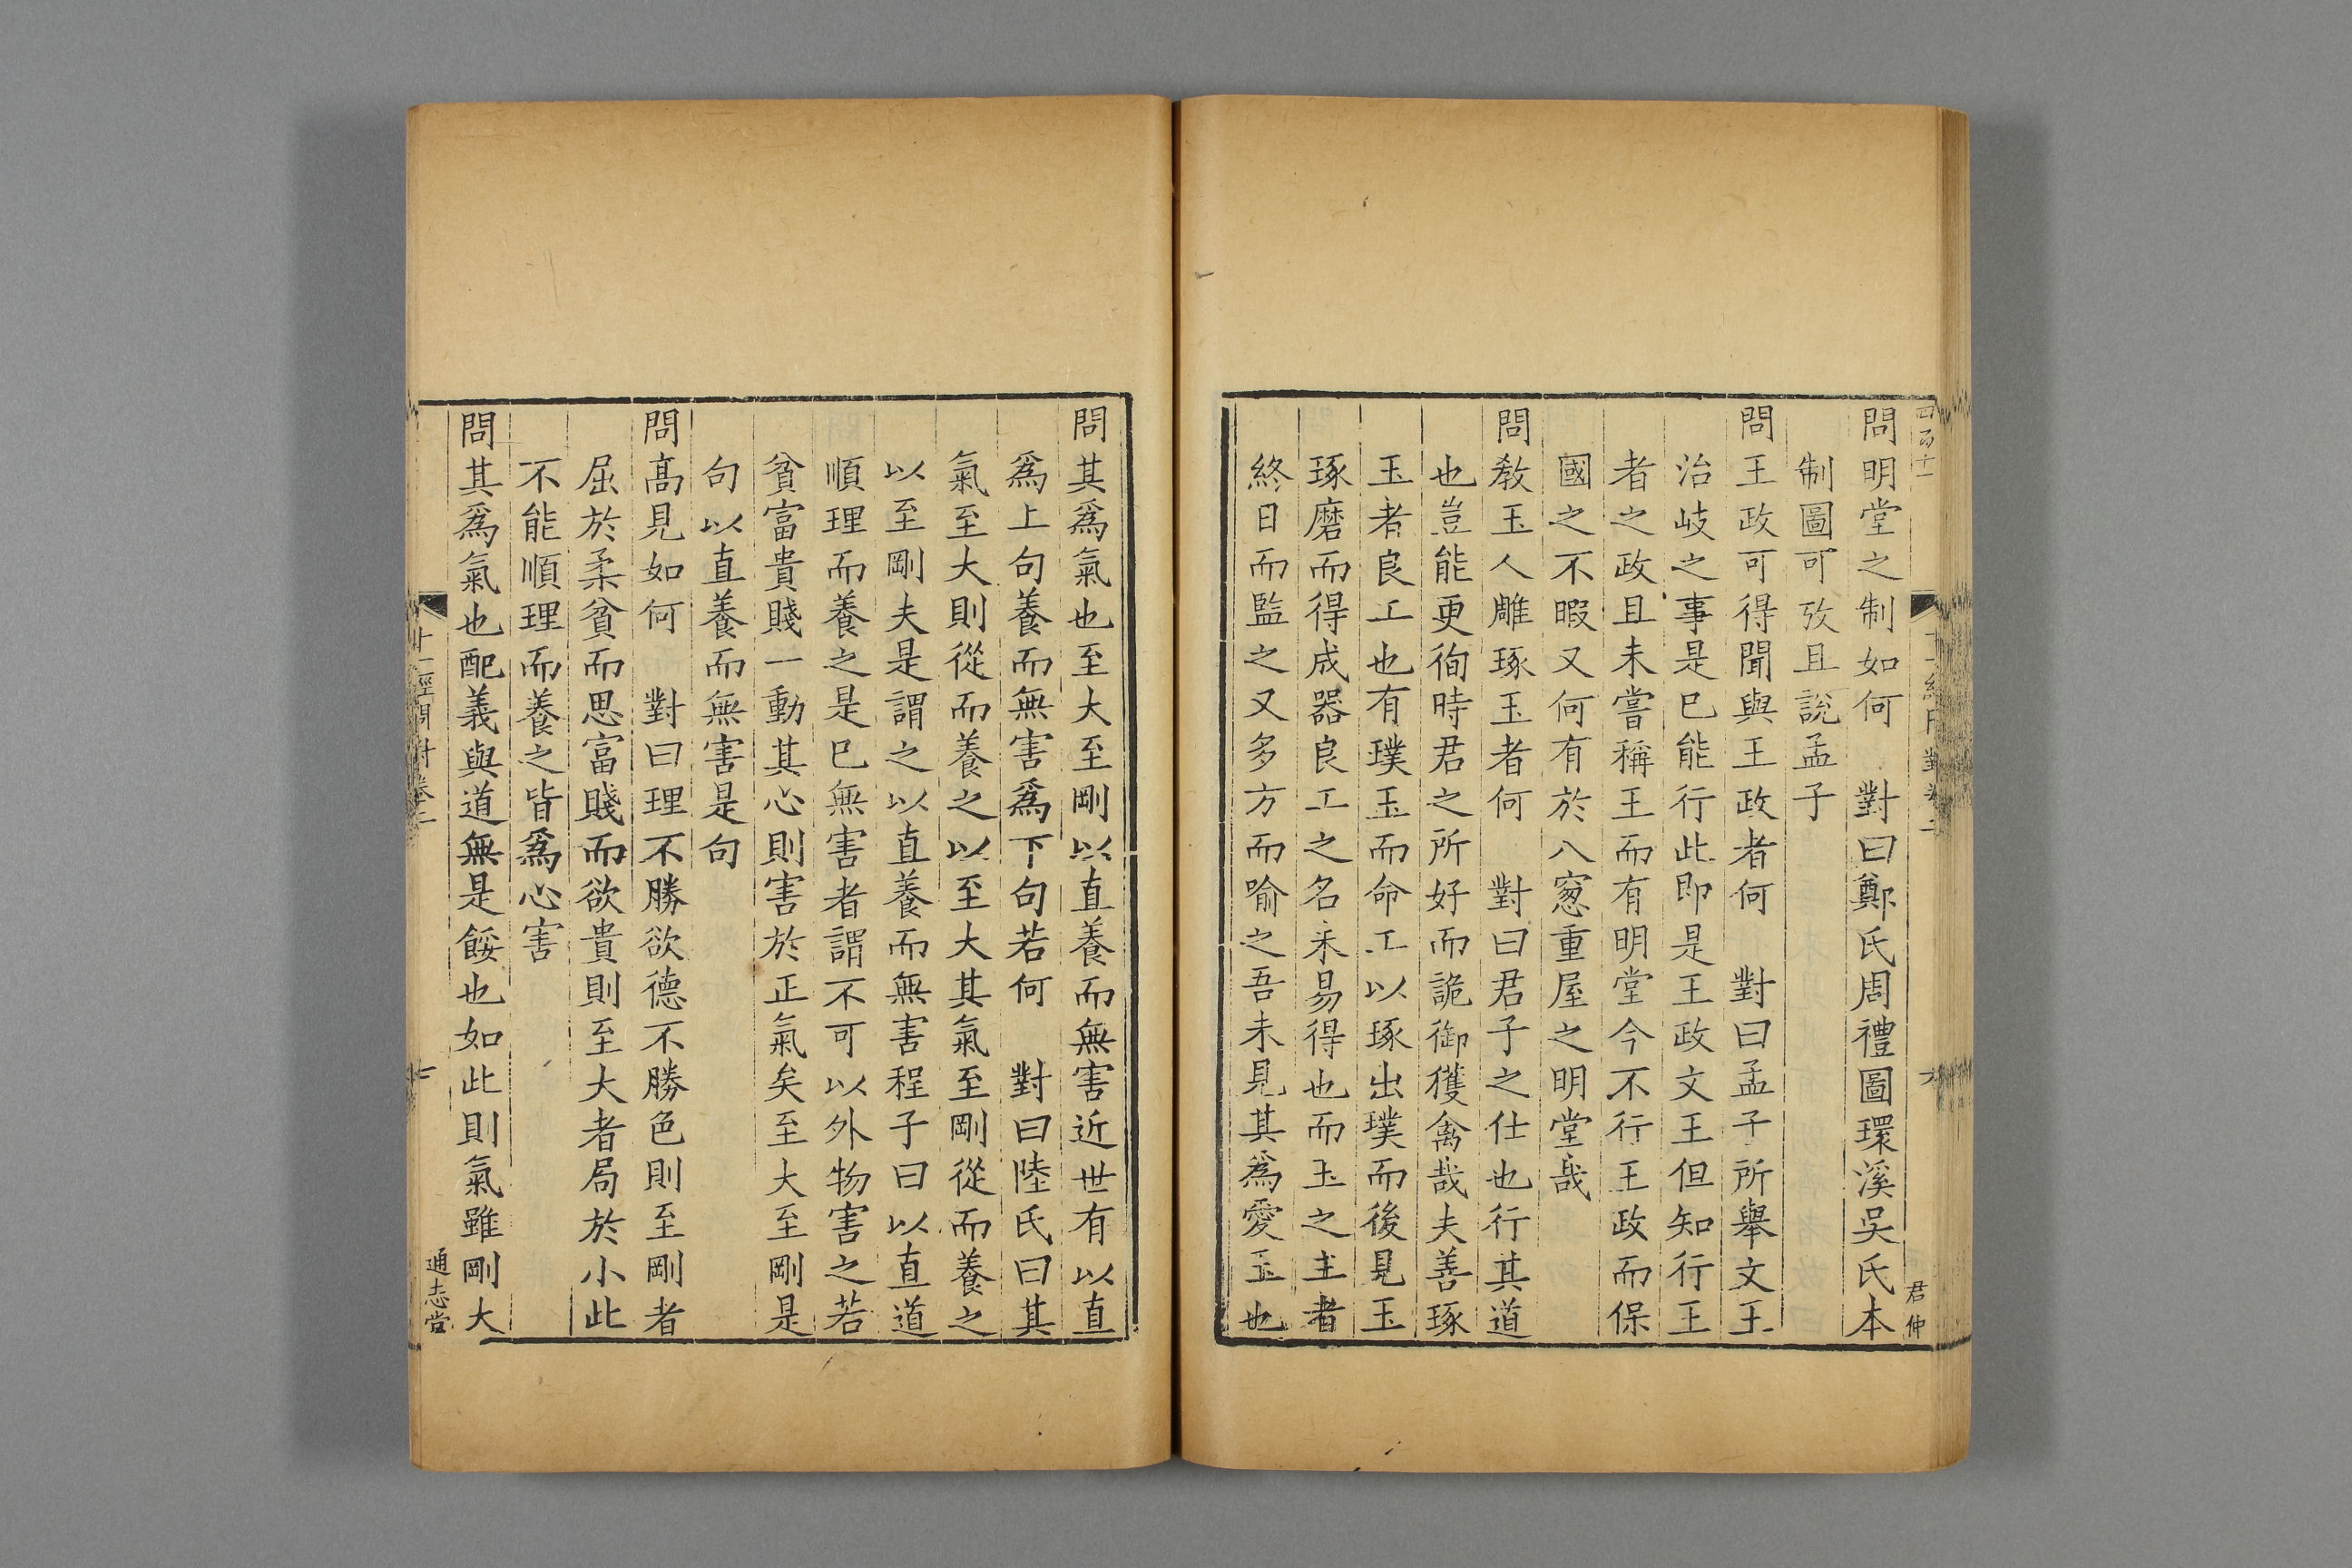 問明堂之制如何　對曰鄭氏周禮圖環溪吳氏本
制圖可攷且說孟子
問王政可得聞與王政者何　對曰孟子所舉文王
治岐之事是巳能行此即是王政文王但知行王
者之政且未嘗稱王而有明堂今不行王政而保
國之不暇又何有於八窻重屋之明堂哉
問教玉人雕琢玉者何　對曰君子之仕也行其道
也豈能更徇時君之所好而詭御獲禽哉夫善琢
玉者良工也有璞玉而命工以琢出璞而後見玉
琢磨而得成器良工之名未易得也而玉之主者
終日而監之又多方而喻之吾未見其爲愛玉也
四百十一
君仲
問其爲氣也至大至剛以直養而無害近世有以直
爲上句養而無害爲下句若何　對曰陸氏曰其
氣至大則從而養之以至大其氣至剛從而養之
以至剛夫是謂之以直養而無害程子曰以直道
順理而養之是巳無害者謂不可以外物害之若
貧富貴賤一動其心則害於正氣矣至大至剛是
句以直養而無害是句
問髙見如何　對曰理不勝欲德不勝色則至剛者
屈於柔貧而思富賤而欲貴則至大者局於小此
不能順理而養之皆爲心害
問其爲氣也配義與道無是餒也如此則氣雖剛大
十一經問對卷二
七
通志堂